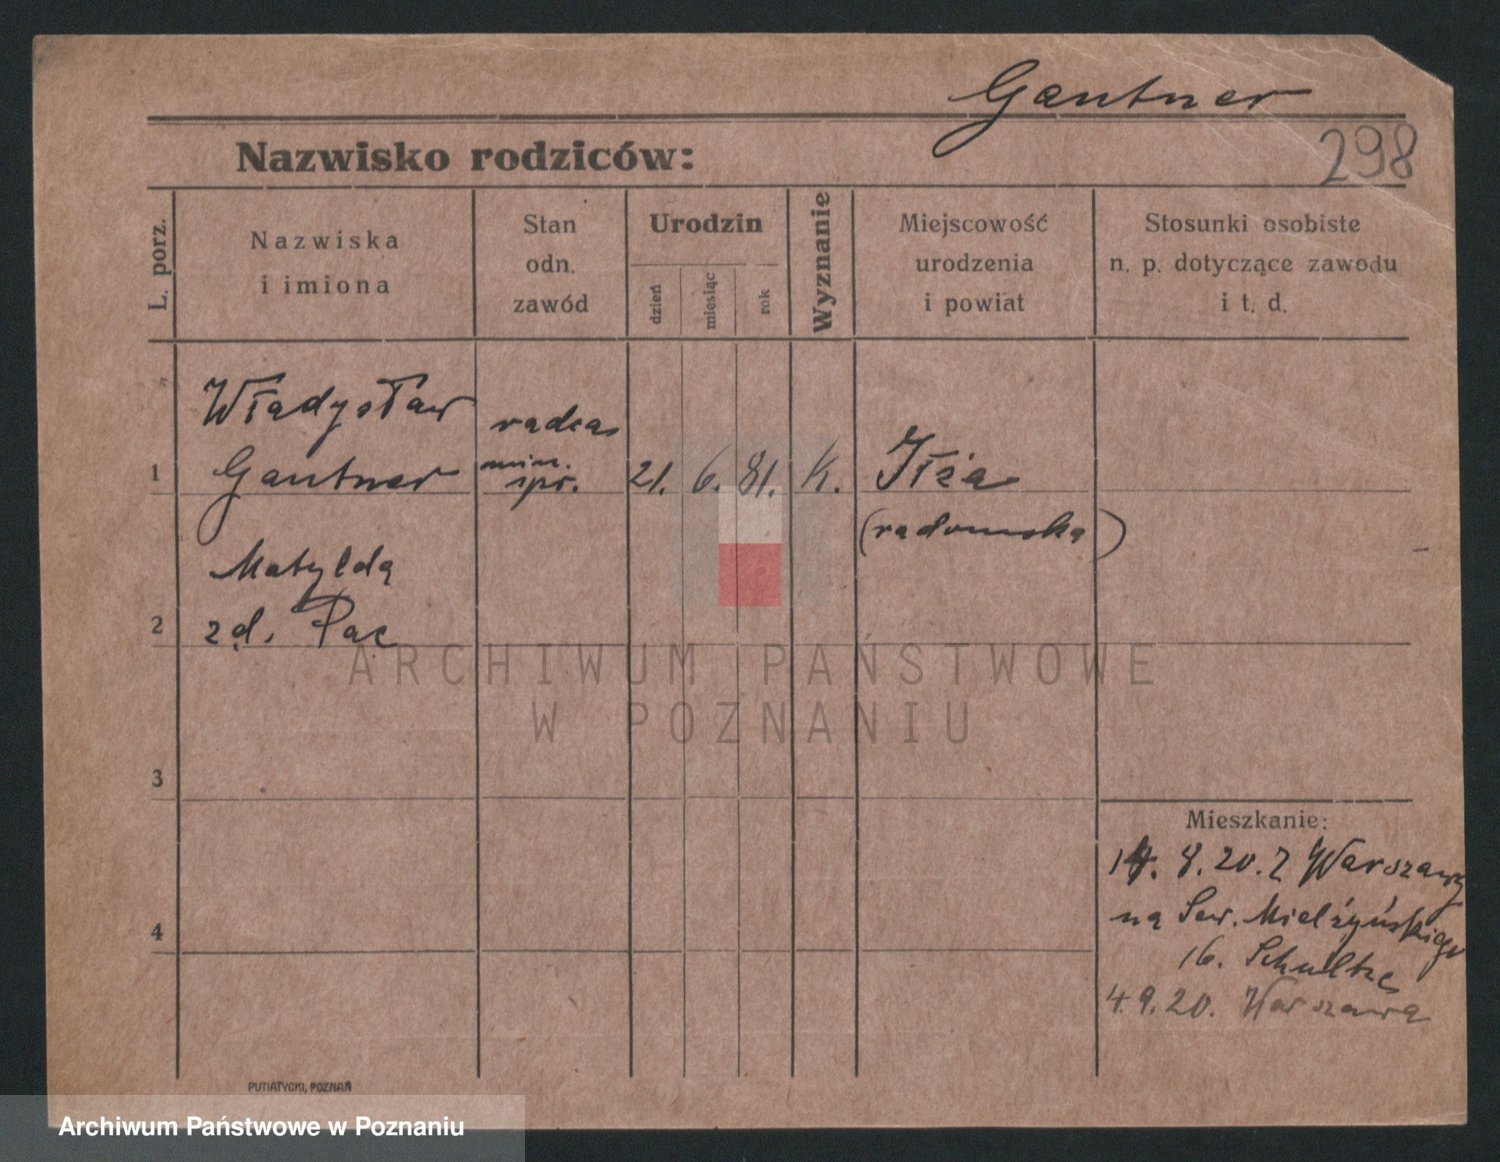 Gantner
298
Nazwisko rodziców:
L. porz.
Nazwiska
i imiona
Stan
odn.
zawód
Urodzin
dzień
miesiąc
rok
Wyznanie
Miejscowość
urodzenia
i powiat
Stosunki osobiste
n. p. dotyczące zawodu
i t. d.
Władysław
1 Gantner
radca
min.
spr.
21. 6. 81. K.
Iłża
(radomska)
Matylda
2 zd. Pac
3
4
Mieszkanie:
14. 8. 20. Z Warszawy
na Sew. Mielżyńskiego
16. Schultze
4.9.20. Warszawa
PUTIATYCKI, POZNAŃ
ARCHIWUM PAŃSTWOWE
W POZNANIU
Archiwum Państwowe w Poznaniu